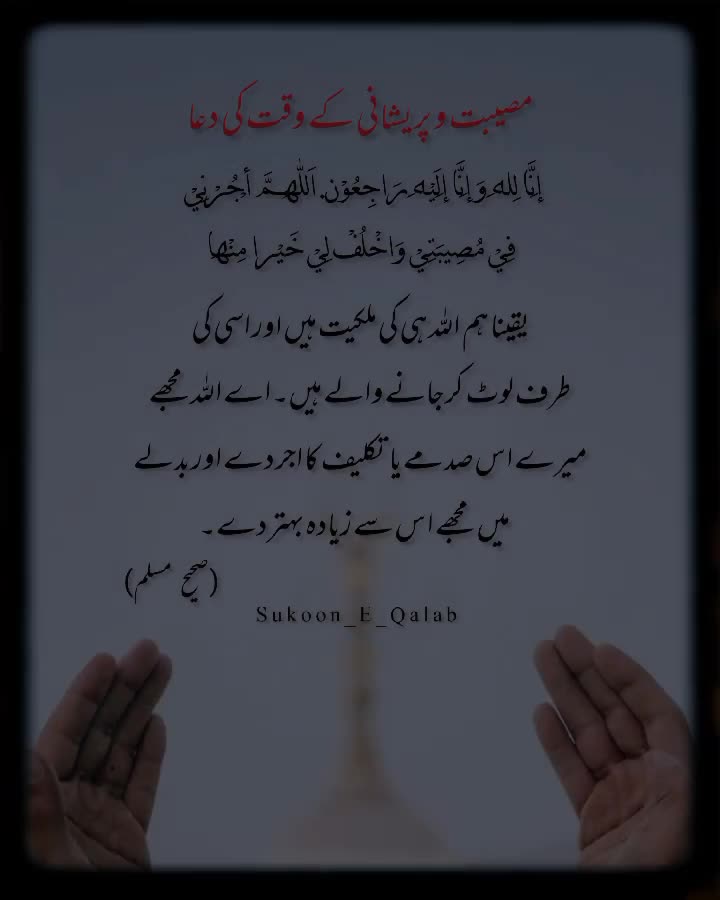 مصیبت و پریشانی کے وقت کی دعا
إنَّا لِلهِ وَإنَّا إلَيْهِ رَاجِعُوْن. اَللّٰهمَّ أجُرْنِيْ
فِيْ مُصِيبَتِيْ وَاخْلُفْ لِيْ خَيْرا مِنْها
یقینا ہم اللہ ہی کی ملکیت ہیں اور اسی کی
طرف لوٹ کر جانے والے ہیں۔ اے اللہ مجھے
میرے اس صدمے یا تکلیف کا اجر دے اور بدلے
میں مجھے اس سے زیادہ بہتر دے۔
(صحیح مسلم)
Sukoon_E_Qalab